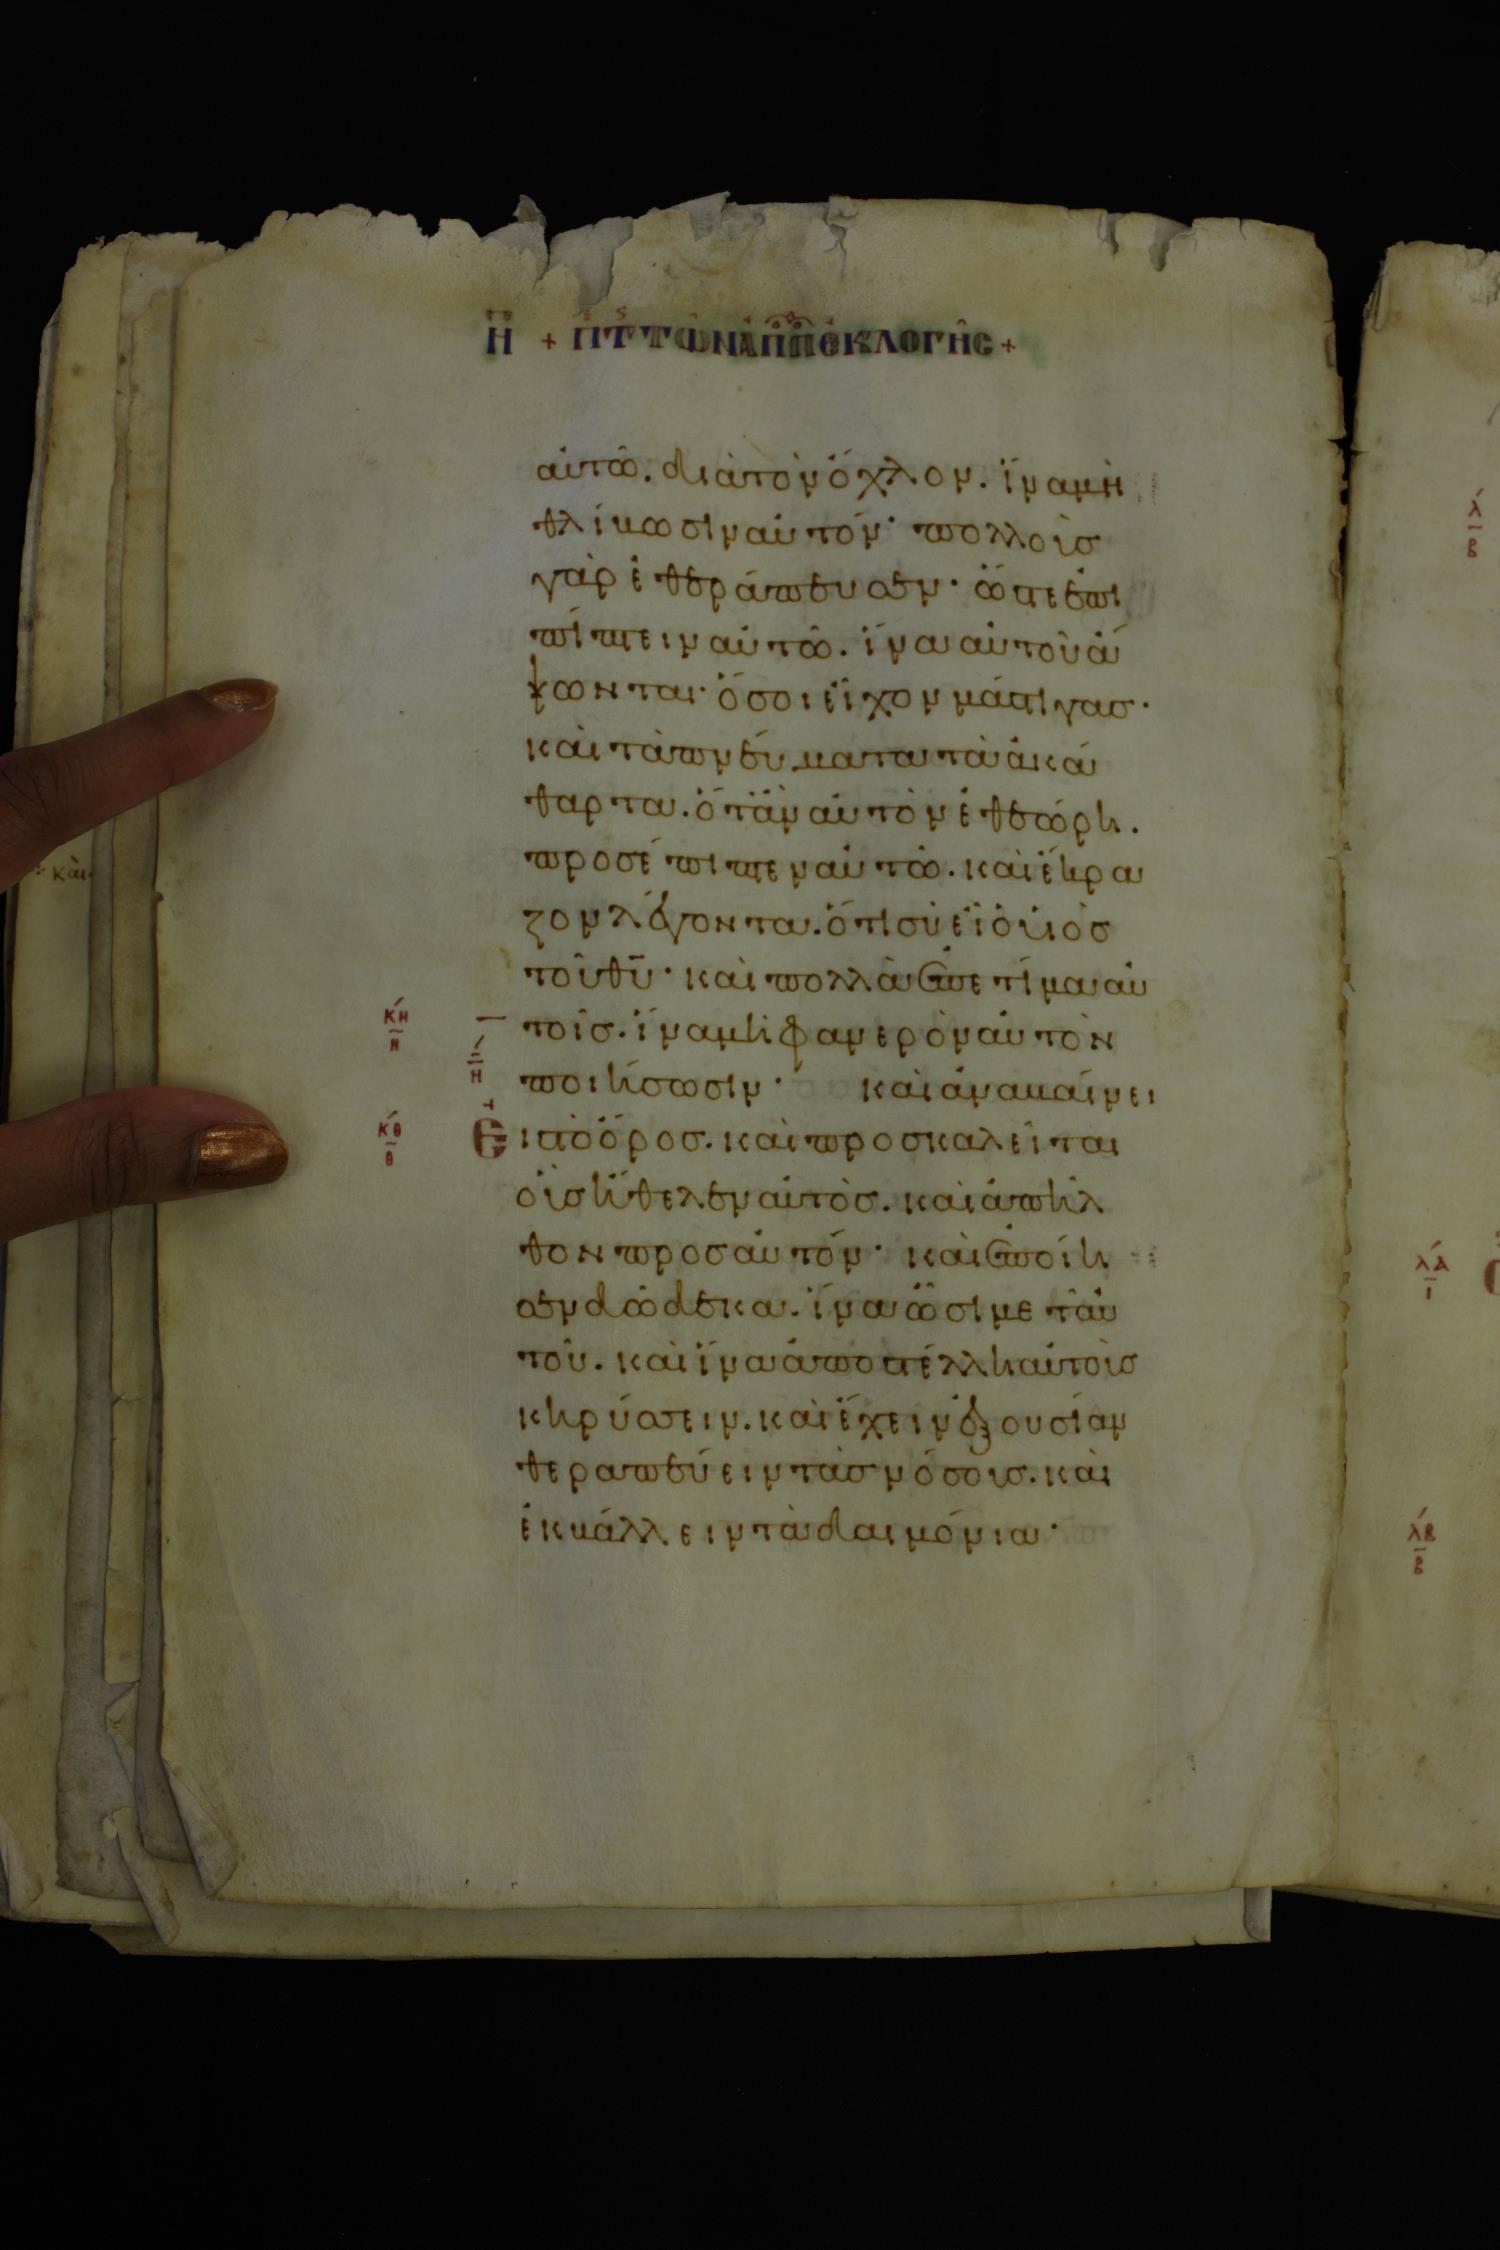 Η + ΠΤ ΤΩΝ ΑΠΠ ΕΚΛΟΓΗΣ +
αὐτῶ. διὰ τὸν ὄχλον. ἵνα μὴ
θλίβωσιν αὐτόν· πολλοὺσ
γὰρ ἐθεράπευσεν· ὥστε ἐπι
πίπτειν αὐτῶ. ἵνα αὐτοῦ ἅ
ψωνται· ὅσοι εἶχον μάστιγασ·
καὶ τὰ πνεύματα τὰ ἀκά
θαρτα. ὅτἂν αὐτὸν ἐθεώρη.
προσέπιπτεν αὐτῶ. καὶ ἔκρα
ζον λέγοντα. ὅτι σὺ εἶ ὁ υἱὸσ
τοῦ θῦ· καὶ πολλὰ ἐπετίμα αὐ
τοῖσ. ἵνα μὴ φανερὸν αὐτὸν
ποιήσωσιν· καὶ ἀναβαίνει
κή
η
ή
η
εισ τὸ ὄροσ. καὶ προσκαλεῖται
κθ
θ
οὓσ ἤθελεν αὐτὸσ. καὶ ἀπῆλ
θον προσ αὐτόν· καὶ ἐποίη
σεν δώδεκα. ἵνα ὦσι μετ αὐ
τοῦ. καὶ ἵνα ἀποστέλλη αὐτοὺσ
κηρύσσειν. καὶ ἔχειν ἐξουσίαν
θεραπεύειν τὰσ νόσουσ. καὶ
ἐκβάλλειν τὰ δαιμόνια·
καὶ
λ
β
λά
ι
λβ
β